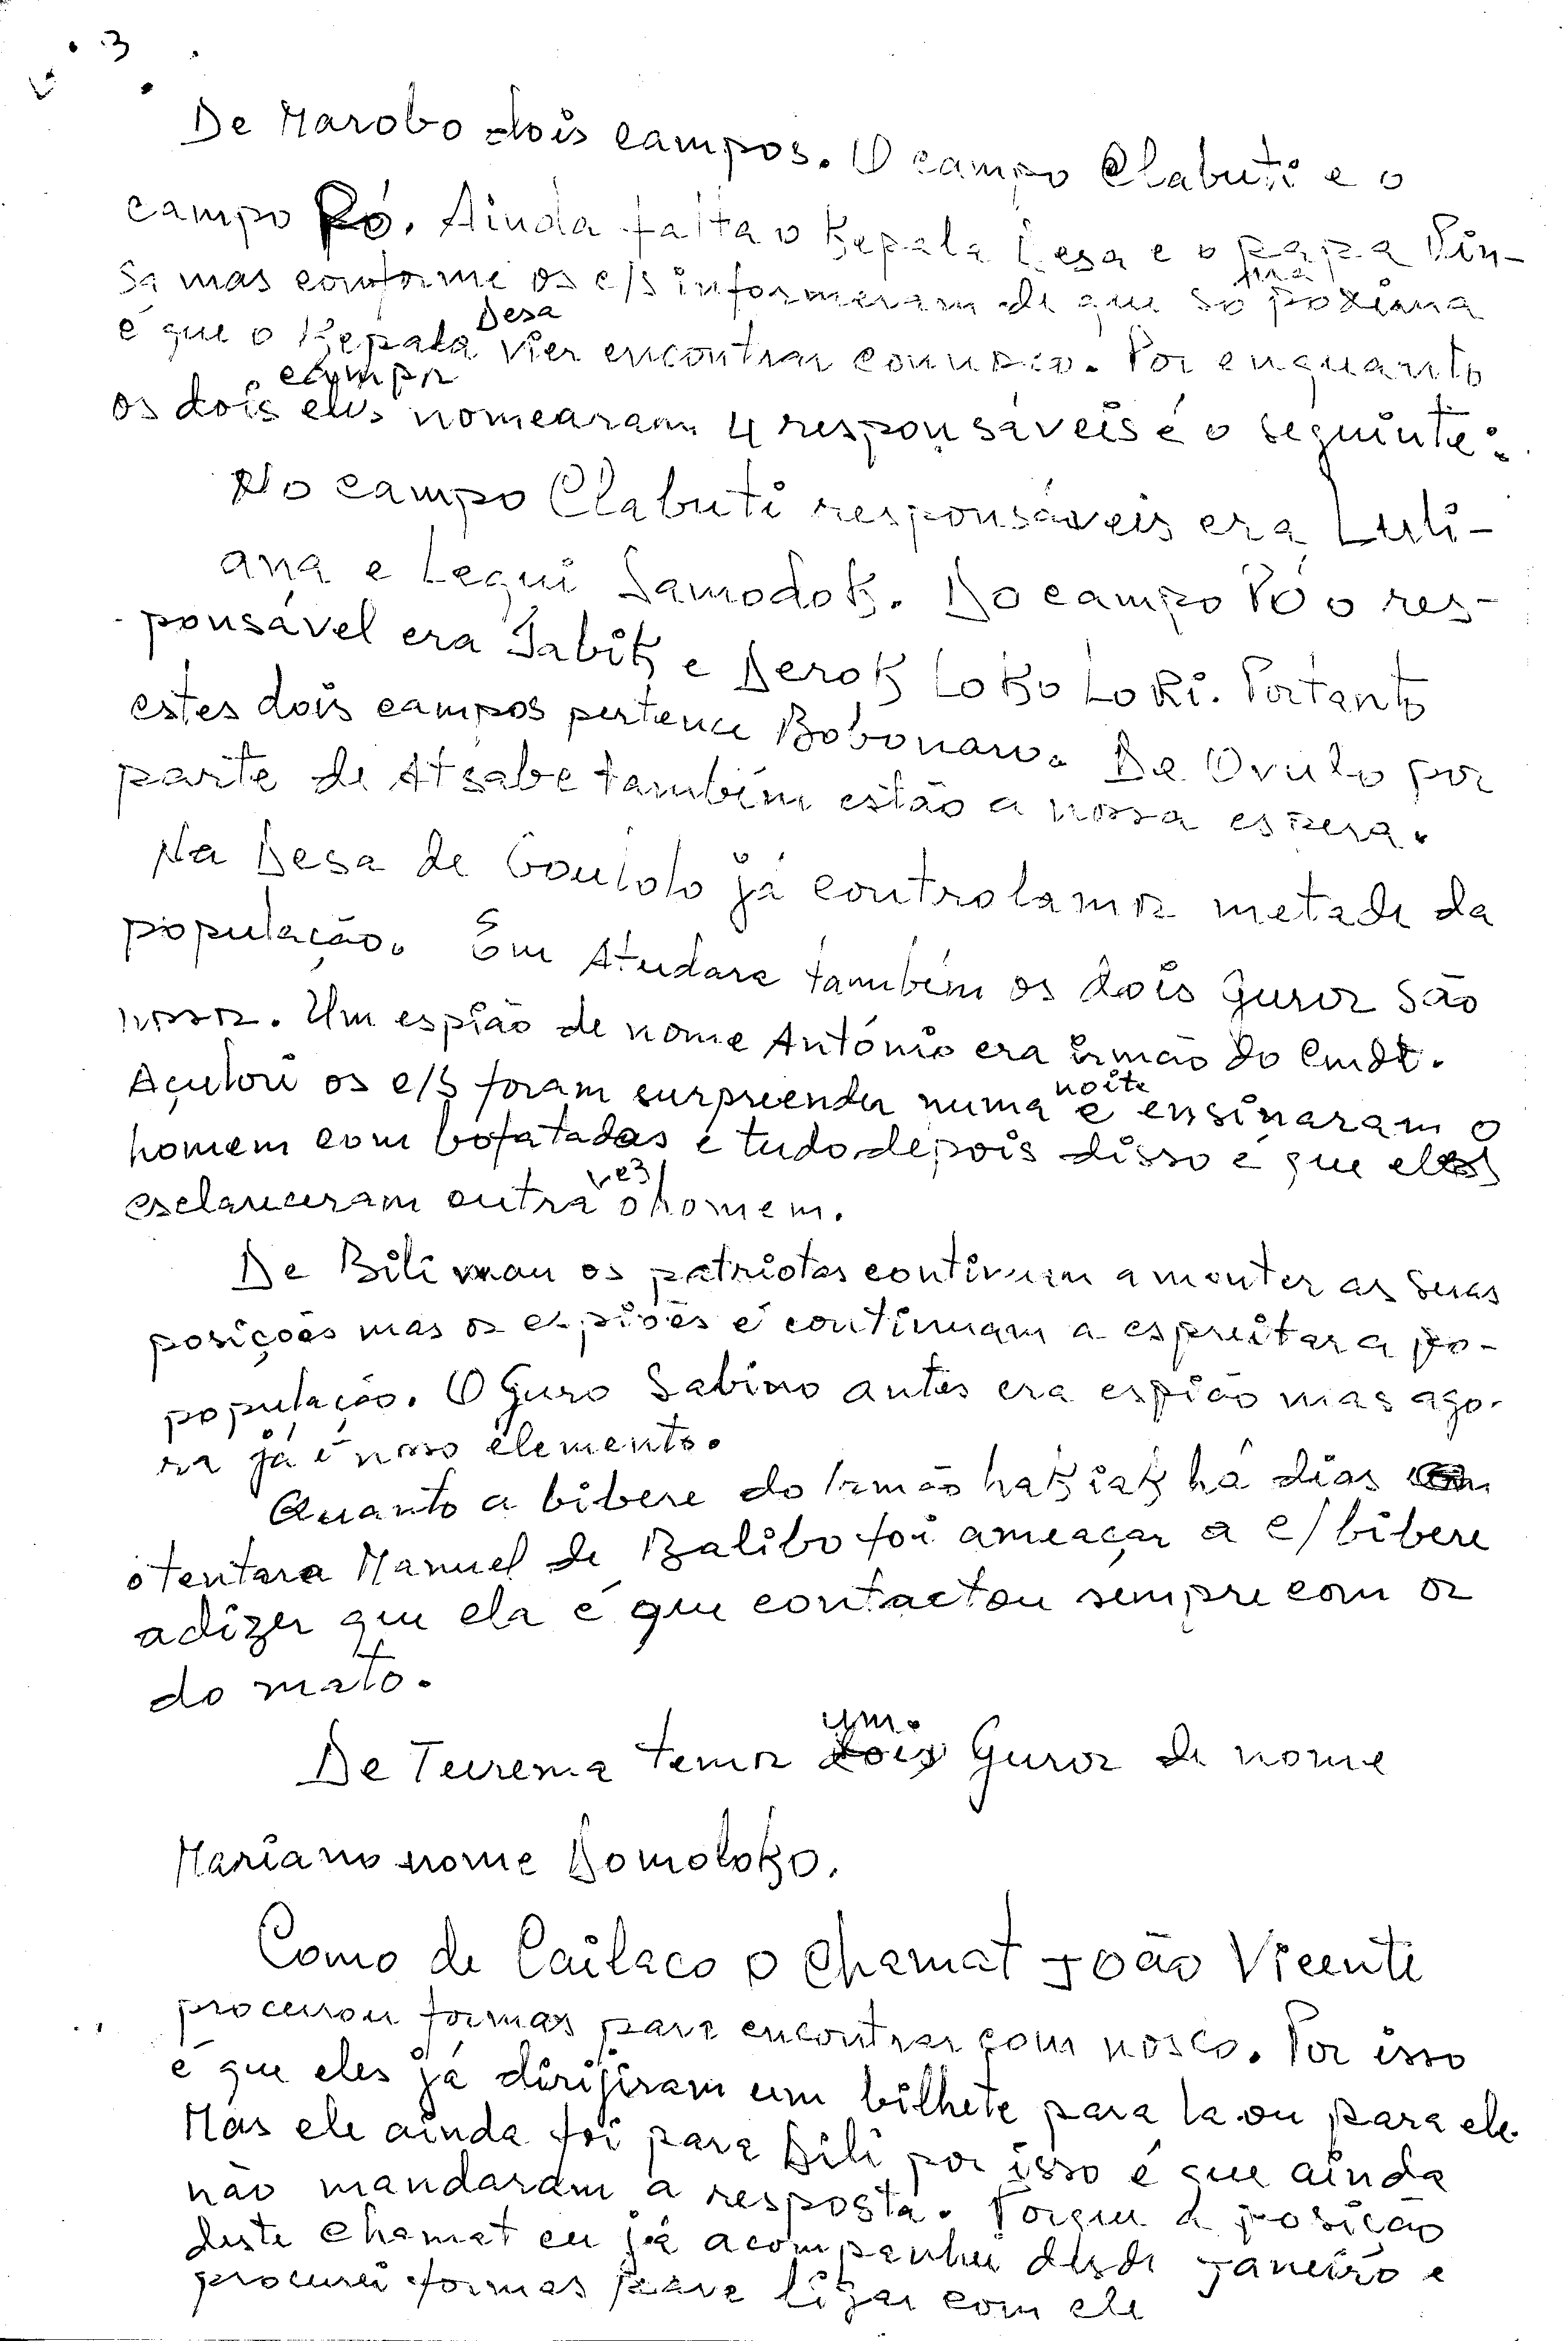 3
De Marobo dois campos. O campo Clabuti e o
campo Pó. Ainda falta o Kepala Desa e o papa Vin-
sa mas conforme os c/s informeram de que só na poxima
é que o Kepala Desa vier encontrar connosco. Por enquanto
os dois campos eles nomearam 4 responsáveis é o seguinte:
No campo Clabuti responsáveis era Luli-
ana e Lequi Samodok. Do campo Pó o res-
ponsável era Jabik e Derok Loko Loki. Portanto
estes dois campos pertence Bobonaro. De Ovulo por
parte de Atsabe também estão a nossa espera.
Na Desa de Goulolo já controlamos metade da
população. Em Atudara também os dois Guros são
nossos. Um espião de nome António era irmão do Cmdt.
Açulori os c/s foram surpreender numa noite e ensinaram o
homem com bofatadas e tudo depois disso é que eles
esclareceram outra vez o homem.
De Bilimau os patriotas continuam a monter as suas
posições mas os espiões é continuam a espreitar a po-
população. O Guro Sabino antes era espião mas ago-
ra já é nosso elemento.
Quanto a bibere do Irmão hakiak há dias
o tentara Manuel de Balibo foi ameaçar a c/bibere
a dizer que ela é que contactou sempre com os
do mato.
De Teurema temos um Guros de nome
Mariano nome Domoloko.
Como de Cailaco o Chamat João Vicente
procurou formas para encontrar com nosco. Por isso
é que eles já dirijiram um bilhete para la ou para ele.
Mas ele ainda foi para Dili por isso é que ainda
não mandaram a resposta. Porque a posição
deste Chamat eu já acompanhei desde Janeiro e
procurei formas para ligar com ele